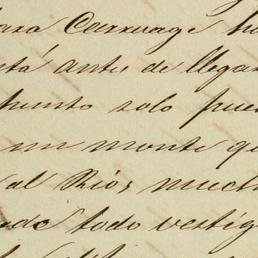 para Carruage ha
está antes de llegar
punto solo pue
un monte qu
al Rios much
de todo vestig